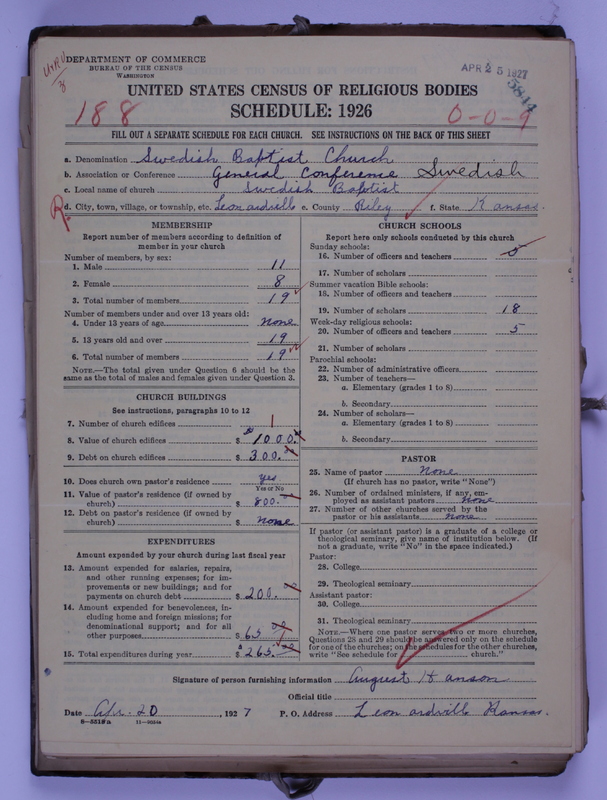 U+RV
78
DEPARTMENT OF COMMERCE
BUREAU OF THE CENSUS
WASHINGTON
APR 25 1927
5844
UNITED STATES CENSUS OF RELIGIOUS BODIES
SCHEDULE: 1926
188
0-0-9
FILL OUT A SEPARATE SCHEDULE FOR EACH CHURCH. SEE INSTRUCTIONS ON THE BACK OF THIS SHEET
a. Denomination Swedish Baptist Church
b. Association or Conference General Conference Swedish
c. Local name of church Swedish Baptist
R. d. City, town, village, or township, etc. Leonardvill e. County Riley f. State Kansas.
MEMBERSHIP
Report number of members according to definition of
member in your church
Number of members, by sex:
1. Male 11
2. Female 8
3. Total number of members 19
Number of members under and over 13 years old:
4. Under 13 years of age none
5. 13 years old and over 19
6. Total number of members 19
NOTE.—The total given under Question 6 should be the
same as the total of males and females given under Question 3.
CHURCH BUILDINGS
See instructions, paragraphs 10 to 12
7. Number of church edifices 1
8. Value of church edifices $1000.
9. Debt on church edifices $300.
10. Does church own pastor's residence yes
Yes or No
11. Value of pastor's residence (if owned by
church) $800.
12. Debt on pastor's residence (if owned by
church) $none
EXPENDITURES
Amount expended by your church during last fiscal year
13. Amount expended for salaries, repairs,
and other running expenses; for im-
provements or new buildings; and for
payments on church debt $200.
14. Amount expended for benevolences, in-
cluding home and foreign missions; for
denominational support; and for all
other purposes $65
15. Total expenditures during year $265.
CHURCH SCHOOLS
Report here only schools conducted by this church
Sunday schools:
16. Number of officers and teachers 5
17. Number of scholars
Summer vacation Bible schools:
18. Number of officers and teachers
19. Number of scholars 18
Week-day religious schools:
20. Number of officers and teachers 5
21. Number of scholars
Parochial schools:
22. Number of administrative officers
23. Number of teachers—
a. Elementary (grades 1 to 8)
b. Secondary
24. Number of scholars—
a. Elementary (grades 1 to 8)
b. Secondary
PASTOR
25. Name of pastor None
(If church has no pastor, write "None")
26. Number of ordained ministers, if any, em-
ployed as assistant pastors None
27. Number of other churches served by the
pastor or his assistants none
If pastor (or assistant pastor) is a graduate of a college or
theological seminary, give name of institution below. (If
not a graduate, write "No" in the space indicated.)
Pastor:
28. College
29. Theological seminary
Assistant pastor:
30. College
31. Theological seminary
NOTE.—Where one pastor serves two or more churches,
Questions 28 and 29 should be answered only on the schedule
for one of the churches; on the schedules for the other churches,
write "See schedule for church."
Signature of person furnishing information August Hanson
Official title
Date Apr. 20, 1927 P. O. Address Leonardvill Kansas.
8-5518a 11-9034a